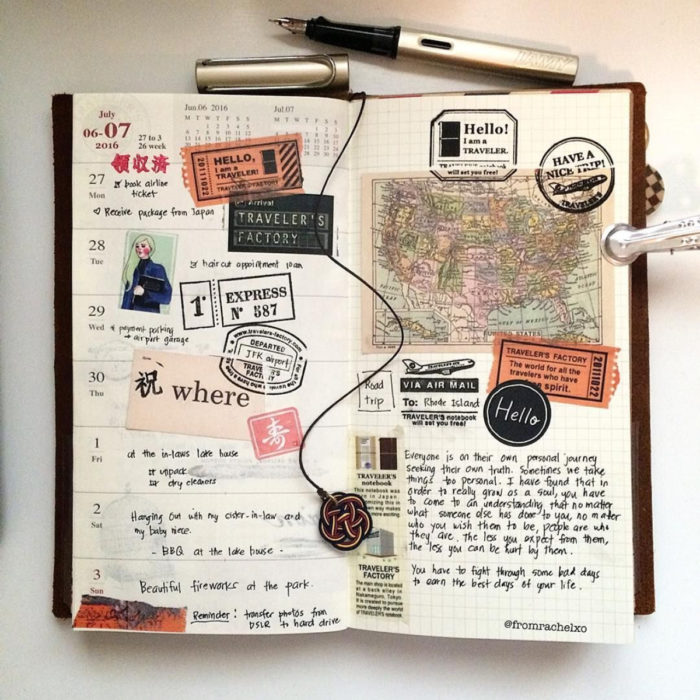 LAMY
July
06-07
2016
27 to 3
26 week
Jun.06 2016
Jul.07
M T W T F S S
M T W T F S S
領収済
27
Mon
book airline
ticket
Receive package from Japan
HELLO,
I am a
TRAVELER!
TRAVELER'S FACTORY
20111022
Arrival
TRAVELER'S
FACTORY
28
Tue
hair cut appointment 10am
1
EXPRESS
No 587
29
Wed
payment parking
→ airport garage
www.travelers-factory.com
DEPARTED
JFK airport
30
Thu
祝 where
寿
1
Fri
at the in-laws lake house
unpack
dry cleaners
2
Sat
Hanging out with my sister-in-law and
my baby niece.
- BBQ at the lake house -
3
Sun
Beautiful fireworks at the park.
Reminder: transfer photos from
DSLR to hard drive
Hello!
I am a
TRAVELER.
will set you free!
HAVE A
NICE TRIP!
ATLANTIC
GULF OF MEXICO
UNITED STATES
TRAVELER'S FACTORY
The world for all the
travelers who have
spirit.
20111022
Road
trip
VIA AIR MAIL
To: Rhode Island
TRAVELER'S notebook
will set you free!
Hello
TRAVELER'S
notebook
This notebook was
in Japan
TRAVELER'S
FACTORY
The main shop is located
at a back alley in
Nakameguro, Tokyo.
It is created to pursue
more deeply the world
of TRAVELER'S notebook.
Everyone is on their own personal journey
seeking their own truth. Sometimes we take
things too personal. I have found that in
order to really grow as a soul, you have
to come to an understanding that no matter
what someone else has done to you, no matter
who you wish them to be, people are who
they are. The less you expect from them,
the less you can be hurt by them.
You have to fight through some bad days
to earn the best days of your life.
@fromrachelxo